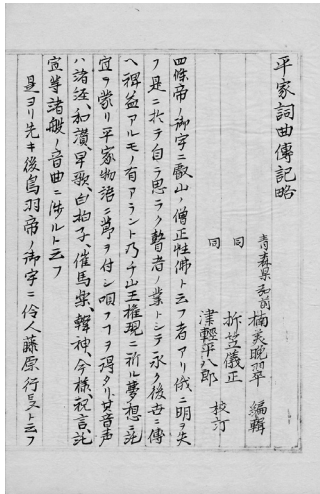 平家詞曲傳記略
青森縣弘前 楠美晩翠 編輯
同 折笠儀正
同 津輕平八郎 校汀
四條帝ノ御宇ニ叡山ノ僧正性佛ト云フ者アリ俄ニ明ヲ失
フ是ニ於テ自ラ思ラク瞽者ノ業トシテ永ク後世ニ傳
ヘ裨益アルモノ有アラント乃チ山王權現ニ祈ル夢想ニ託
宜ヲ蒙リ平家物語ニ節ヲ付シ唄フヿヲ得タリ其音声
ハ諸経、和讃、早歌、白拍子、催馬楽、韓神、今様、祝言、託
宣等諸般ノ音曲ニ渉ルト云フ
是ヨリ先キ後鳥羽帝ノ御宇ニ伶人藤原行長ト云フ